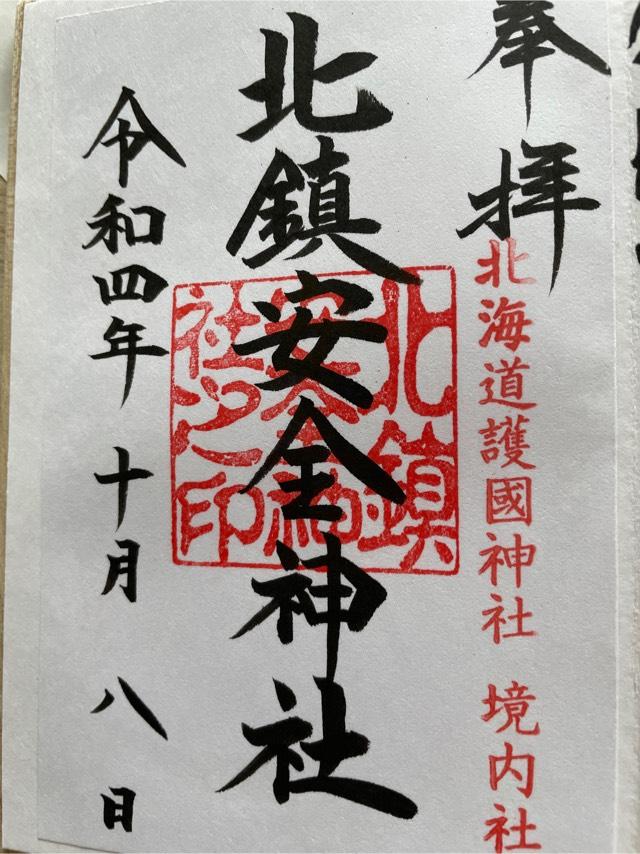 奉拝
北海道護國神社 境内社
北鎮安全神社
北鎮
安全神
社之印
令和四年 十月 八日